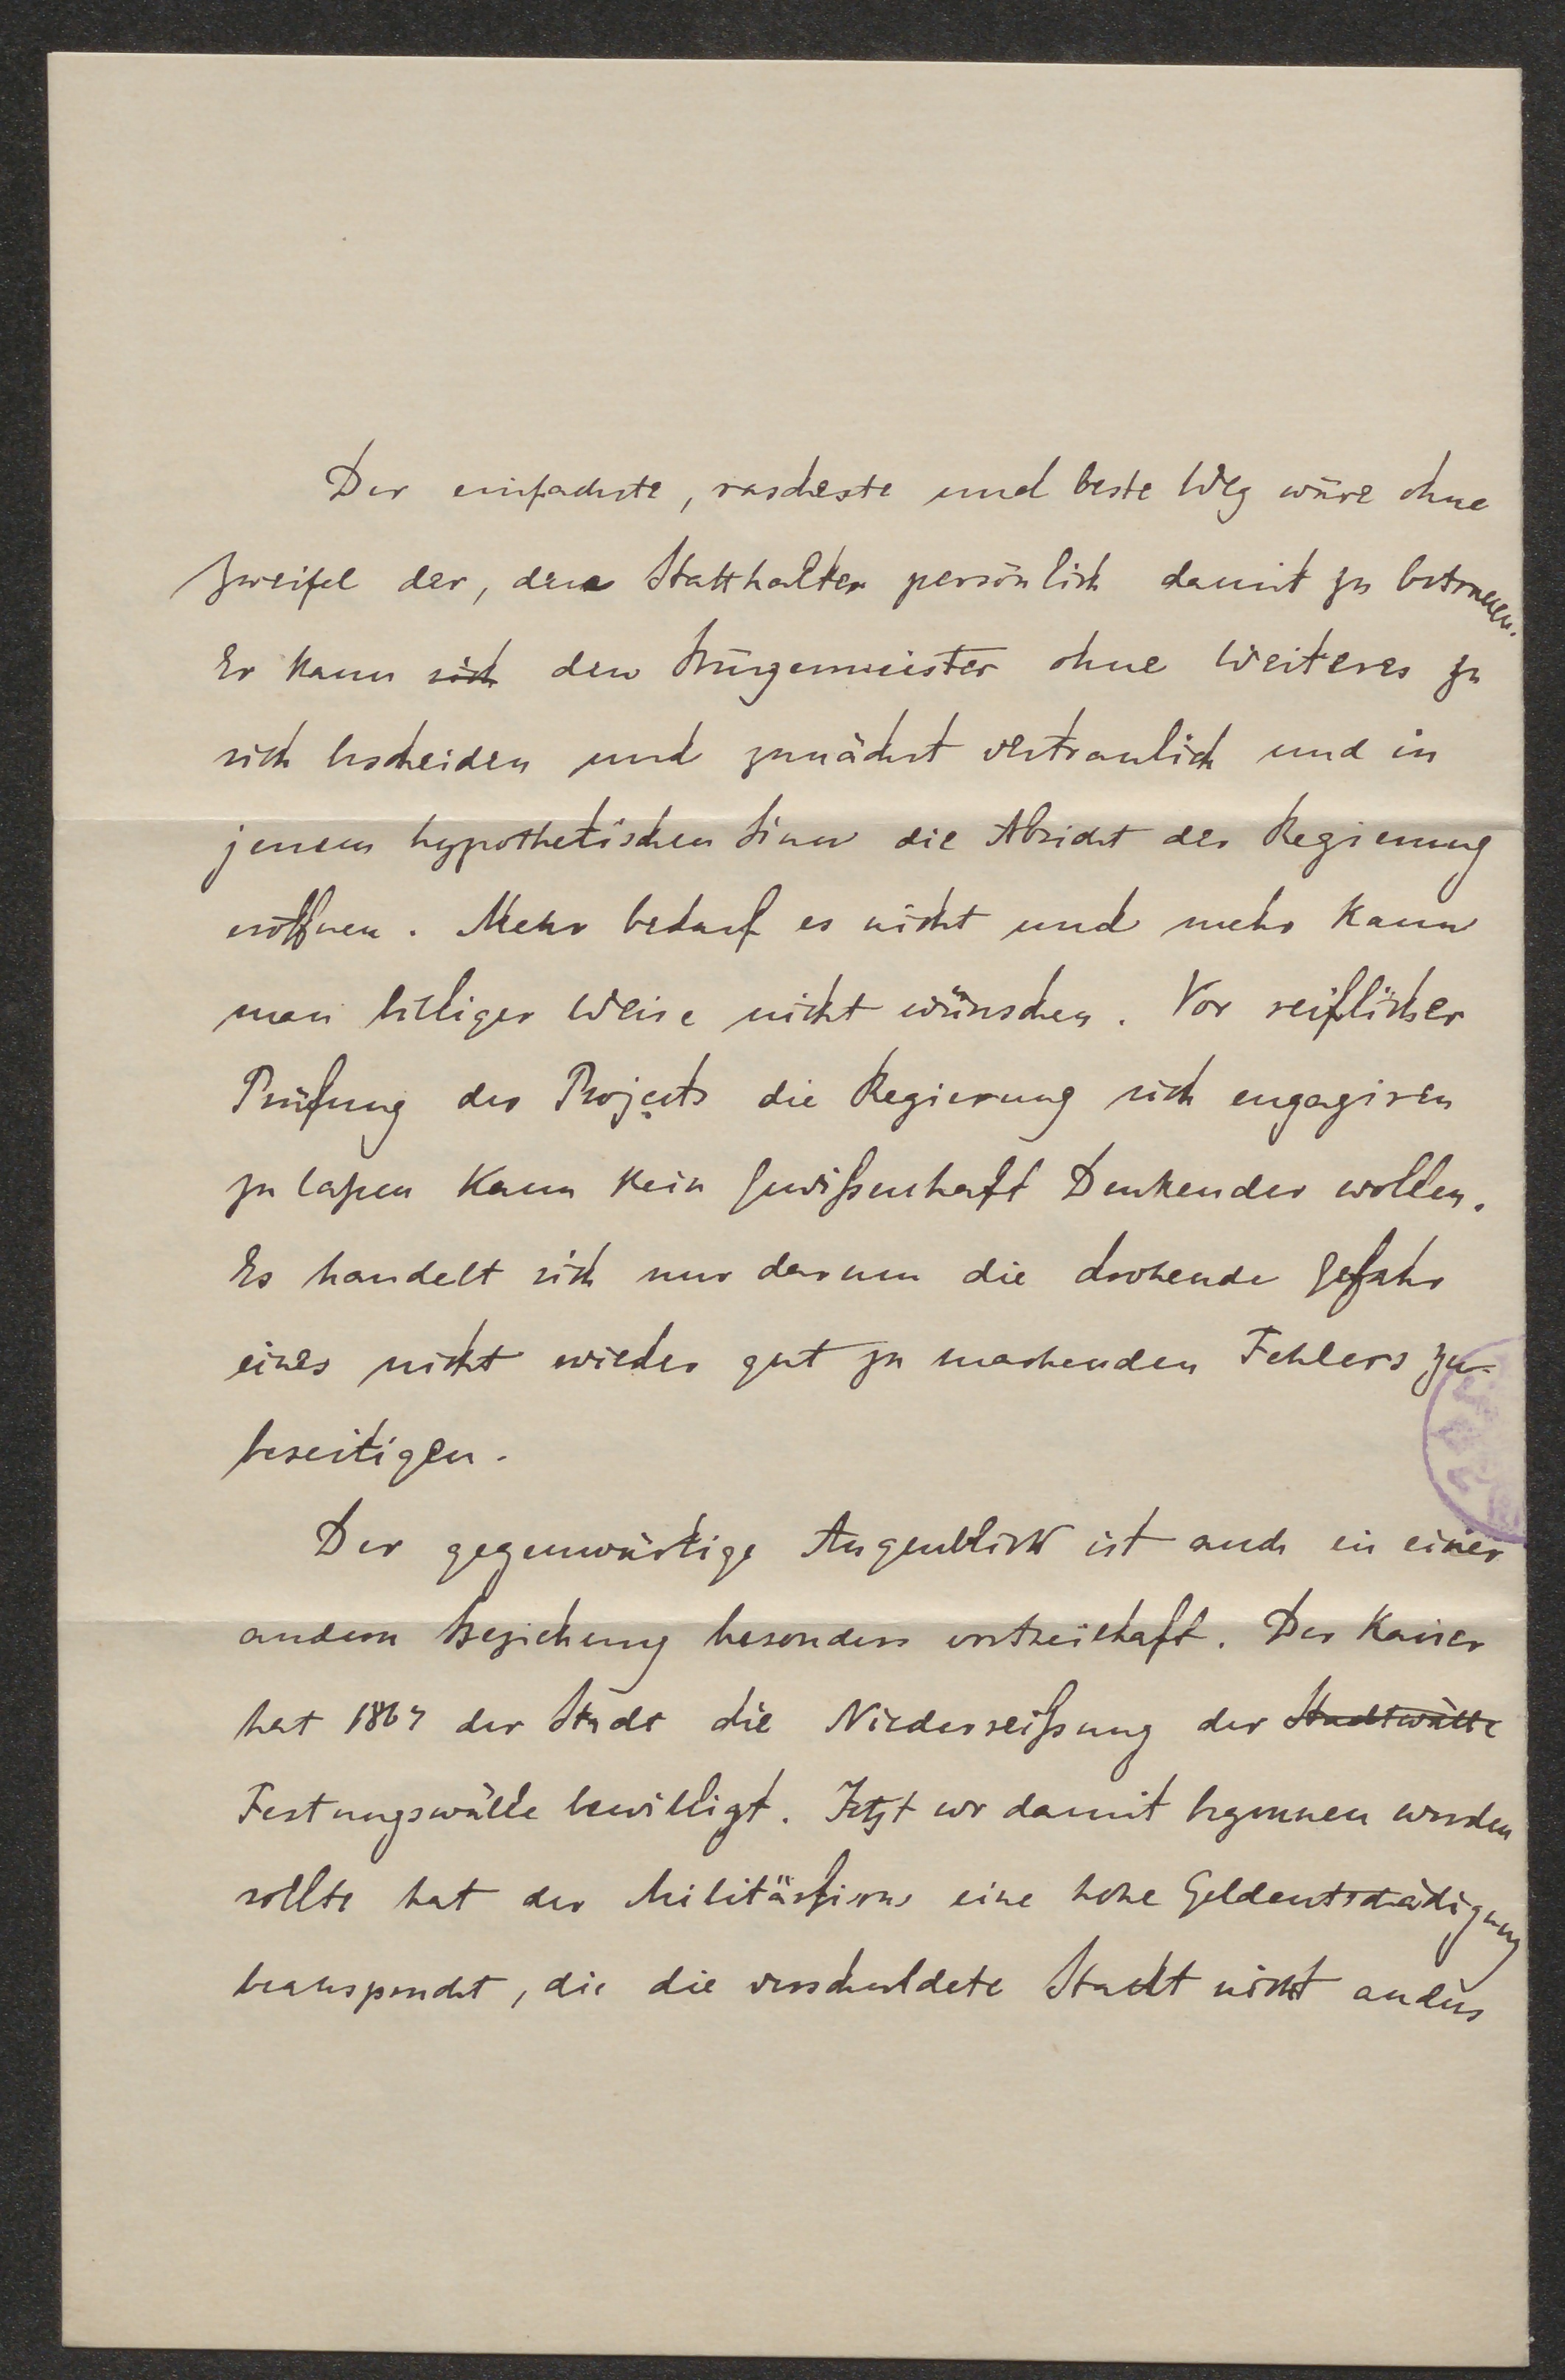 Der einfachste, rascheste und beste Weg wäre ohne
Zweifel der, den Statthalter persönlich damit zu betrauen.
Er kann sich den Bürgermeister ohne Weiteres zu
sich bescheiden und zunächst vertraulich und in
jenem hypothetischen Sinn die Absicht der Regierung
eröffnen. Mehr bedarf es nicht und mehr kann
man billiger Weise nicht wünschen. Vor reiflicher
Prüfung des Projects die Regierung sich engagiren
zu laßen kann kein Gewißenhaft Denkender wollen.
Es handelt sich nur darum die drohende Gefahr
eines nicht wieder gut zu machenden Fehlers zu
beseitigen.
Der gegenwärtige Augenblick ist auch in einer
andern Beziehung besonders vortheilhaft. Der Kaiser
hat 1867 der Stadt die Niederreißung der Stadtwälle
Festungswälle bewilligt. Jetzt wo damit begonnen werden
sollte hat der Militärfiscus eine hohe Geldentschädigung
beansprucht, die die verschuldete Stadt nicht anders